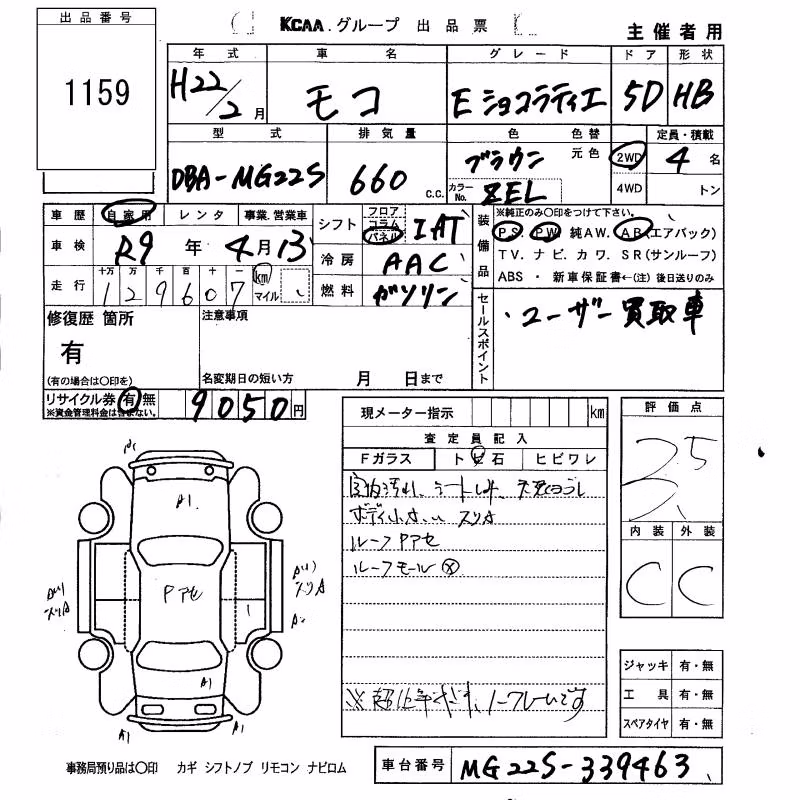 出品番号
1159
KCAA.グループ 出品票
主催者用
年式 車名 グレード ドア 形状
H22/2月 モコ Eショコラティエ 5D HB
型式 排気量 色 色替 定員・積載
DBA-MG22S 660 C.C. ブラウン 元色 2WD 4名
カラーNo. ZEL 4WD トン
車歴 自家用 レンタ 事業.営業車
車検 R9年 4月13
走行 十万 万 千 百 十 一 km
129607 マイル
シフト フロア コラム パネル IAT
冷房 AAC
燃料 ガソリン
装備品
※純正のみ〇印をつけて下さい。
PS. PW 純AW. AB(エアバック)
TV. ナビ. カワ. SR(サンルーフ)
ABS・新車保証書←(注)後日送りのみ
セールスポイント
・ユーザー買取車
修復歴 箇所
有
(有の場合は〇印を)
注意事項
名変期日の短い方 月 日まで
リサイクル券 有 無 9050円
※資金管理料金は含まない。
現メーター指示 km
査定員記入
Fガラス トビ石 ヒビワレ
ボディ小キズ スリA
ルーフPアセ
ルーフモール ⓧ
評価点
内装 外装
C C
A1
Pアセ
スリA
スリA
A1
A1
A1
ジャッキ 有・無
工具 有・無
スペアタイヤ 有・無
事務局預り品は〇印 カギ シフトノブ リモコン ナビロム
車台番号 MG22S-339463